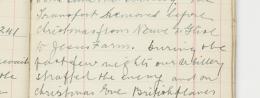 Transport removed before
241 Christmas from Neuve Eglise
to Jesus Farm. During the
past few nights our artillery
straffed the enemy and on
Christmas Eve British planes